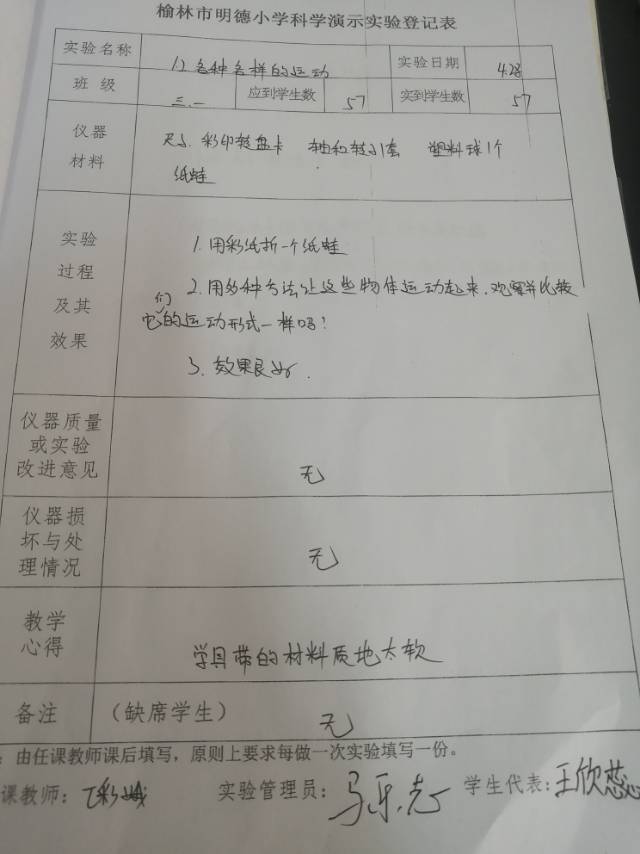 榆林市明德小学科学演示实验登记表
实验名称 12各种各样的运动 实验日期 4.28
班级 三.一 应到学生数 57 实到学生数 57
仪器 尺子、彩印转盘卡 轴和轮小1套 塑料球1个
材料 纸蛙
实验 1.用彩纸折一个纸蛙
过程 2.用多种方法让这些物体运动起来,观察并比较
及其 它们的运动形式一样吗?
效果 3.效果良好.
仪器质量
或实验
改进意见 无
仪器损
坏与处 无
理情况
教学
心得 学具带的材料质地太软
备注 (缺席学生) 无
:由任课教师课后填写,原则上要求每做一次实验填写一份。
课教师: 实验管理员: 学生代表:王欣蕊